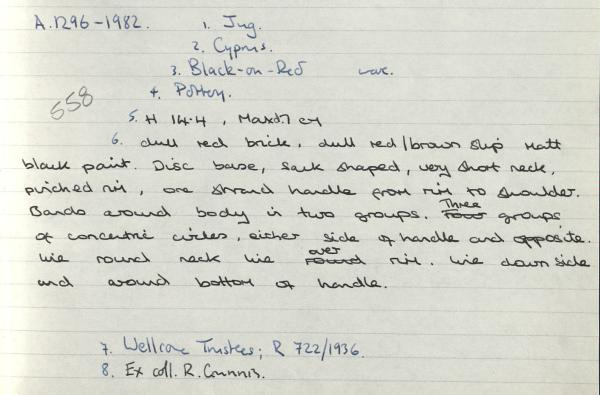 A.1296-1982.
1. Jug.
2. Cyprus.
3. Black-on-Red ware.
558
4. Pottery.
5. H 14.4, Maxd.7 cm
6. dull red brick, dull red/brown slip Matt
black paint. Disc base, sack shaped, very short neck,
pinched rim, one strand handle from rim to shoulder.
Bands around body in two groups. Three groups
of concentric circles, either side of handle and opposite.
line round neck line over rim. line down side
and around bottom of handle.
7. Wellcome Trustees; R 722/1936.
8. Ex coll. R. Gunnis.